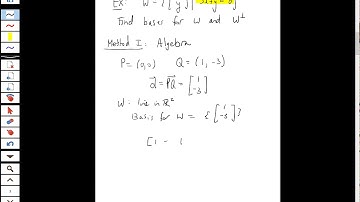 Ex: W = { [ y ] | 3x+y=0 }
Find bases for W and W⊥
Method I: Algebra
P = (0,0) Q = (1,-3)
d⃗ = PQ⃗ = [ 1 -3 ]
W: line in ℝ²
Basis for W = { [ 1 -3 ] }
[ 1 -